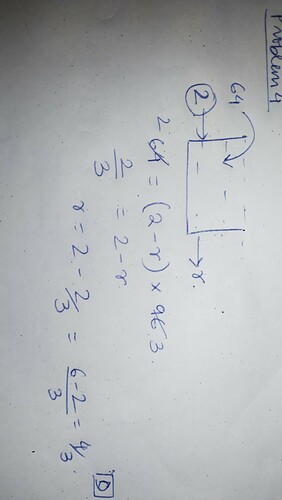 Problem 4
64
2
r.
2 64 = (2-r) × 96 3.
2/3 = 2-r
r = 2 - 2/3 = 6-2/3 = 4/3.
D